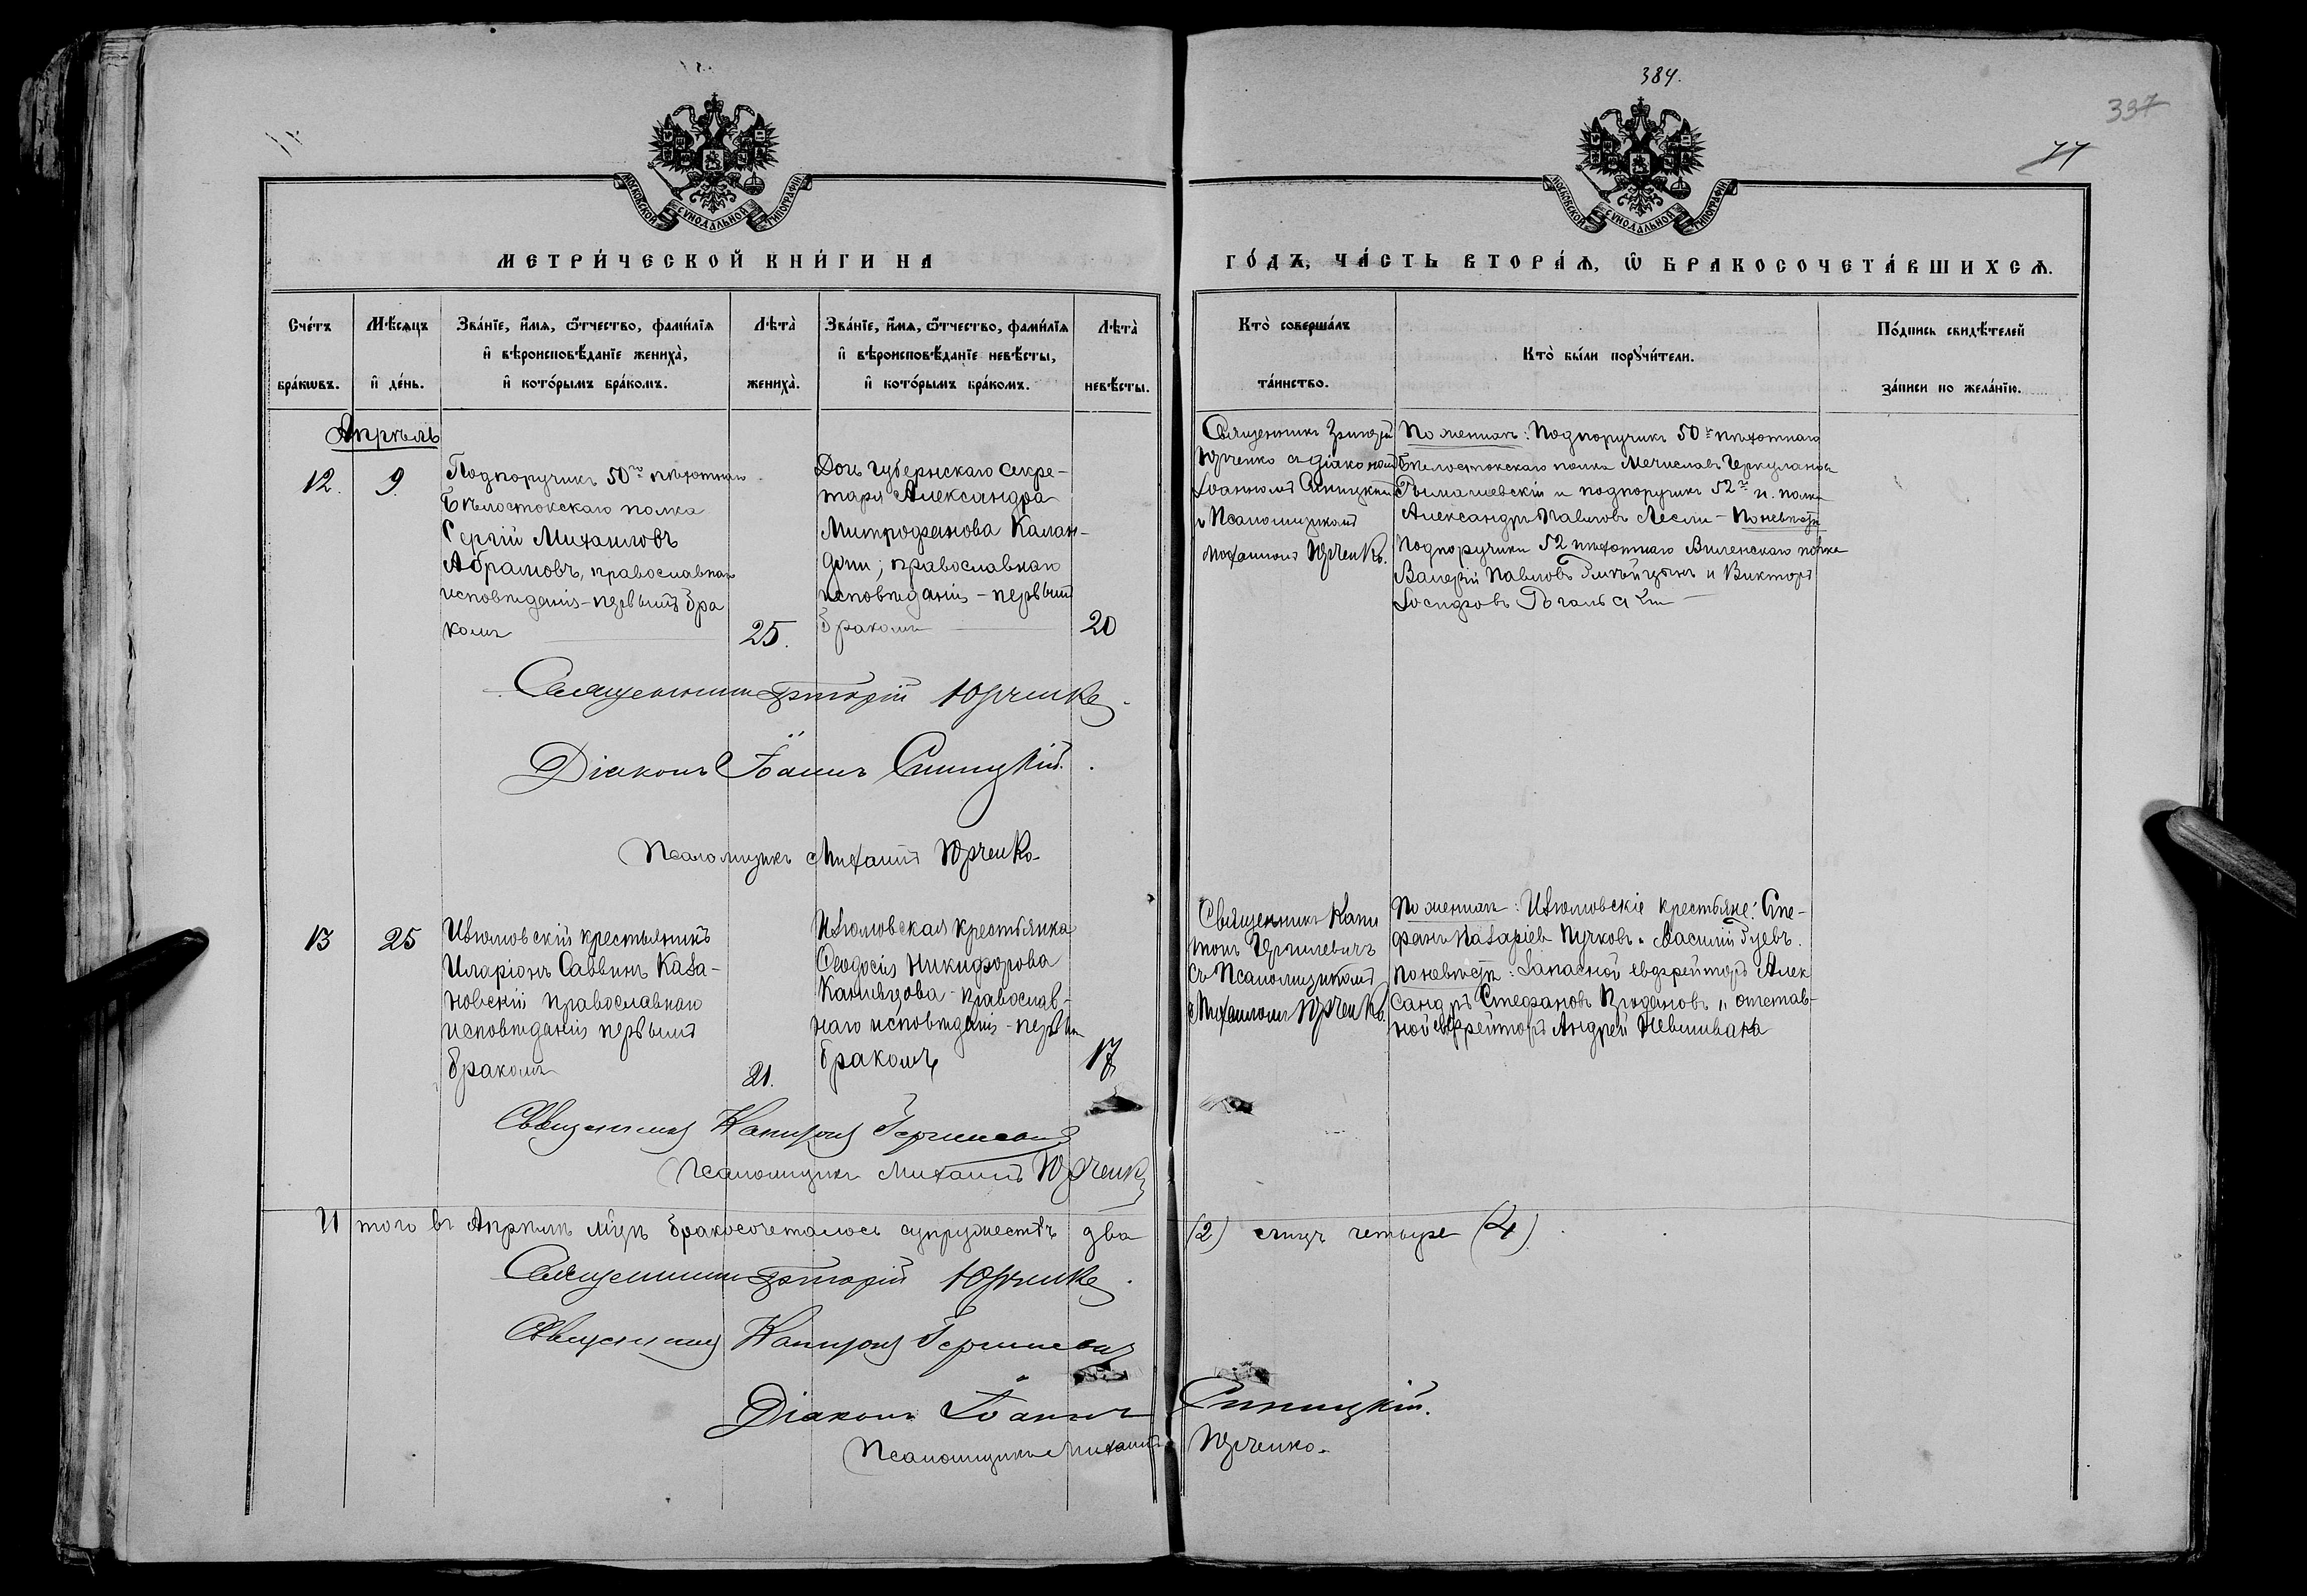 384.
337
77
МОСКОВСКОЙ СѴНОДАЛЬНОЙ ТИПОГРАФІИ
МОСКОВСКОЙ СѴНОДАЛЬНОЙ ТИПОГРАФІИ
МЕТРИ́ЧЕСКОЙ КНИ́ГИ НА
ГО́ДЪ, ЧА́СТЬ ВТОРА́Ѧ, Ѡ҆ БРАКОСОЧЕТА́ВШИХСѦ.
Сче́тъ
бра́кѡвъ.
Мѣ́сѧцъ
и҆ де́нь.
Зва́нїе, и҆́мѧ, ѻ҆́тчество, фами́лїѧ
и҆ вѣроисповѣ́данїе жениха̀,
и҆ кото́рымъ бра́комъ.
Лѣта̀
жениха̀.
Зва́нїе, и҆́мѧ, ѻ҆́тчество, фами́лїѧ
и҆ вѣроисповѣ́данїе невѣ́сты,
и҆ кото́рымъ бра́комъ.
Лѣта̀
невѣ́сты.
Кто̀ соверша́лъ
та́инство.
Кто̀ бы́ли порꙋчи́тели.
По́дпись свидѣ́телей
за́писи по жела́нїю.
Апрѣль
12.
9.
Подпоручикъ 50го пѣхотнаго
Бѣлостокскаго полка
Сергій Михаиловъ
Абрамовъ, православнаго
исповѣданія - первымъ бра
комъ
25.
Дочь Губернскаго Секре-
таря Александра
Митрофанова Калан-
; православнаго
исповѣданія - первымъ
бракомъ
20
Священникъ Григорій
Юрченко съ діакономъ
Іоанномъ Синицкимъ
и Псаломщикомъ
Михаиломъ Юрченко.
По женихѣ: Подпоручикъ 50го пѣхотнаго
Бѣлостокскаго полка Мечиславъ
и подпоручикъ 52го п. полка
Александръ Павловъ - По невѣстѣ
Подпоручики 52 пѣхотнаго Виленскаго полка
Валерій Павловъ и Викторъ
Іосифовъ
Священникъ Григорій Юрченко.
Діаконъ Іоаннъ Синицкій.
Псаломщикъ Михаилъ Юрченко
13
25
Изюмовскій крестьянинъ
Иларіонъ Саввинъ Каза-
новскій православнаго
исповѣданія первымъ
бракомъ
21.
Изюмовская крестьянка
Ѳеодосія Никифорова
Каневцова - православ-
наго исповѣданія - первым
бракомъ
17
Священникъ Капи
тонъ
съ Псаломщикомъ
Михаиломъ Юрченко.
По женихѣ: Изюмовскіе крестьяне: Сте-
фанъ Назаріев Пучковъ и Василій Гуевъ.
По невѣстѣ: Запасной ефрейторъ Алек
сандръ Стефановъ и отстав-
ной ефрейторъ Андрей
Священникъ Капитонъ
Псаломщикъ Михаилъ Юрченко
Итого въ Апрѣлѣ м҃цѣ бракосочеталось супружествъ два (2) лицъ четыре (4).
Священникъ Григорій Юрченко.
Священникъ Капитонъ
Діаконъ Іоаннъ Синицкій.
Псаломщикъ Михаилъ Юрченко.